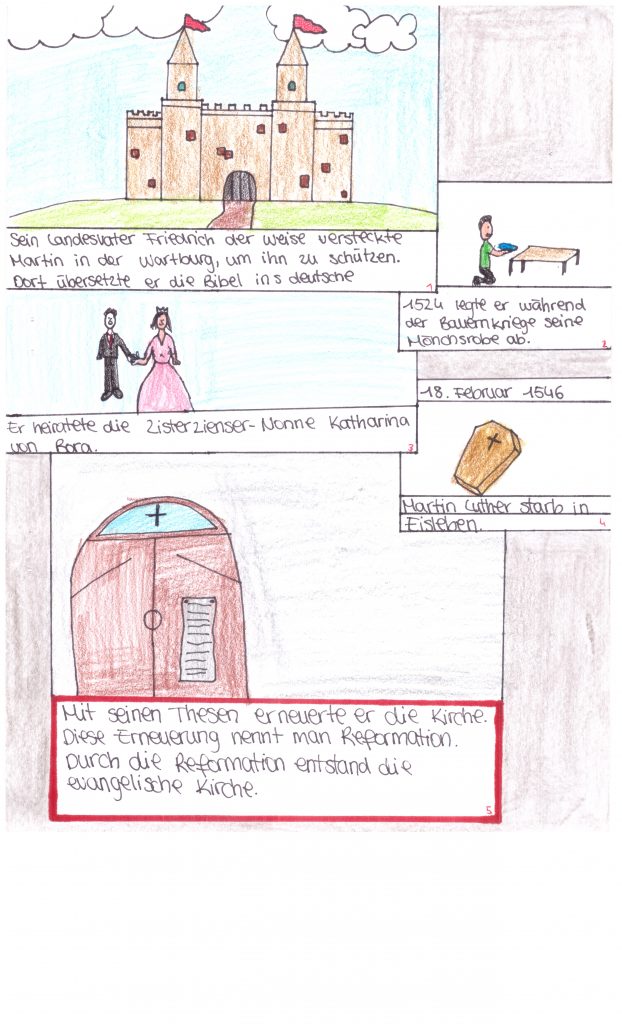 Sein Landesvater Friedrich der Weise versteckte
Martin in der Wartburg, um ihn zu schützen.
Dort übersetzte er die Bibel ins deutsche
1
1524 legte er während
der Bauernkriege seine
Mönchsrobe ab.
2
Er heiratete die Zisterzienser-Nonne Katharina
von Bora.
3
18. Februar 1546
Martin Luther starb in
Eisleben.
4
Mit seinen Thesen erneuerte er die Kirche.
Diese Erneuerung nennt man Reformation.
Durch die Reformation entstand die
evangelische Kirche.
5